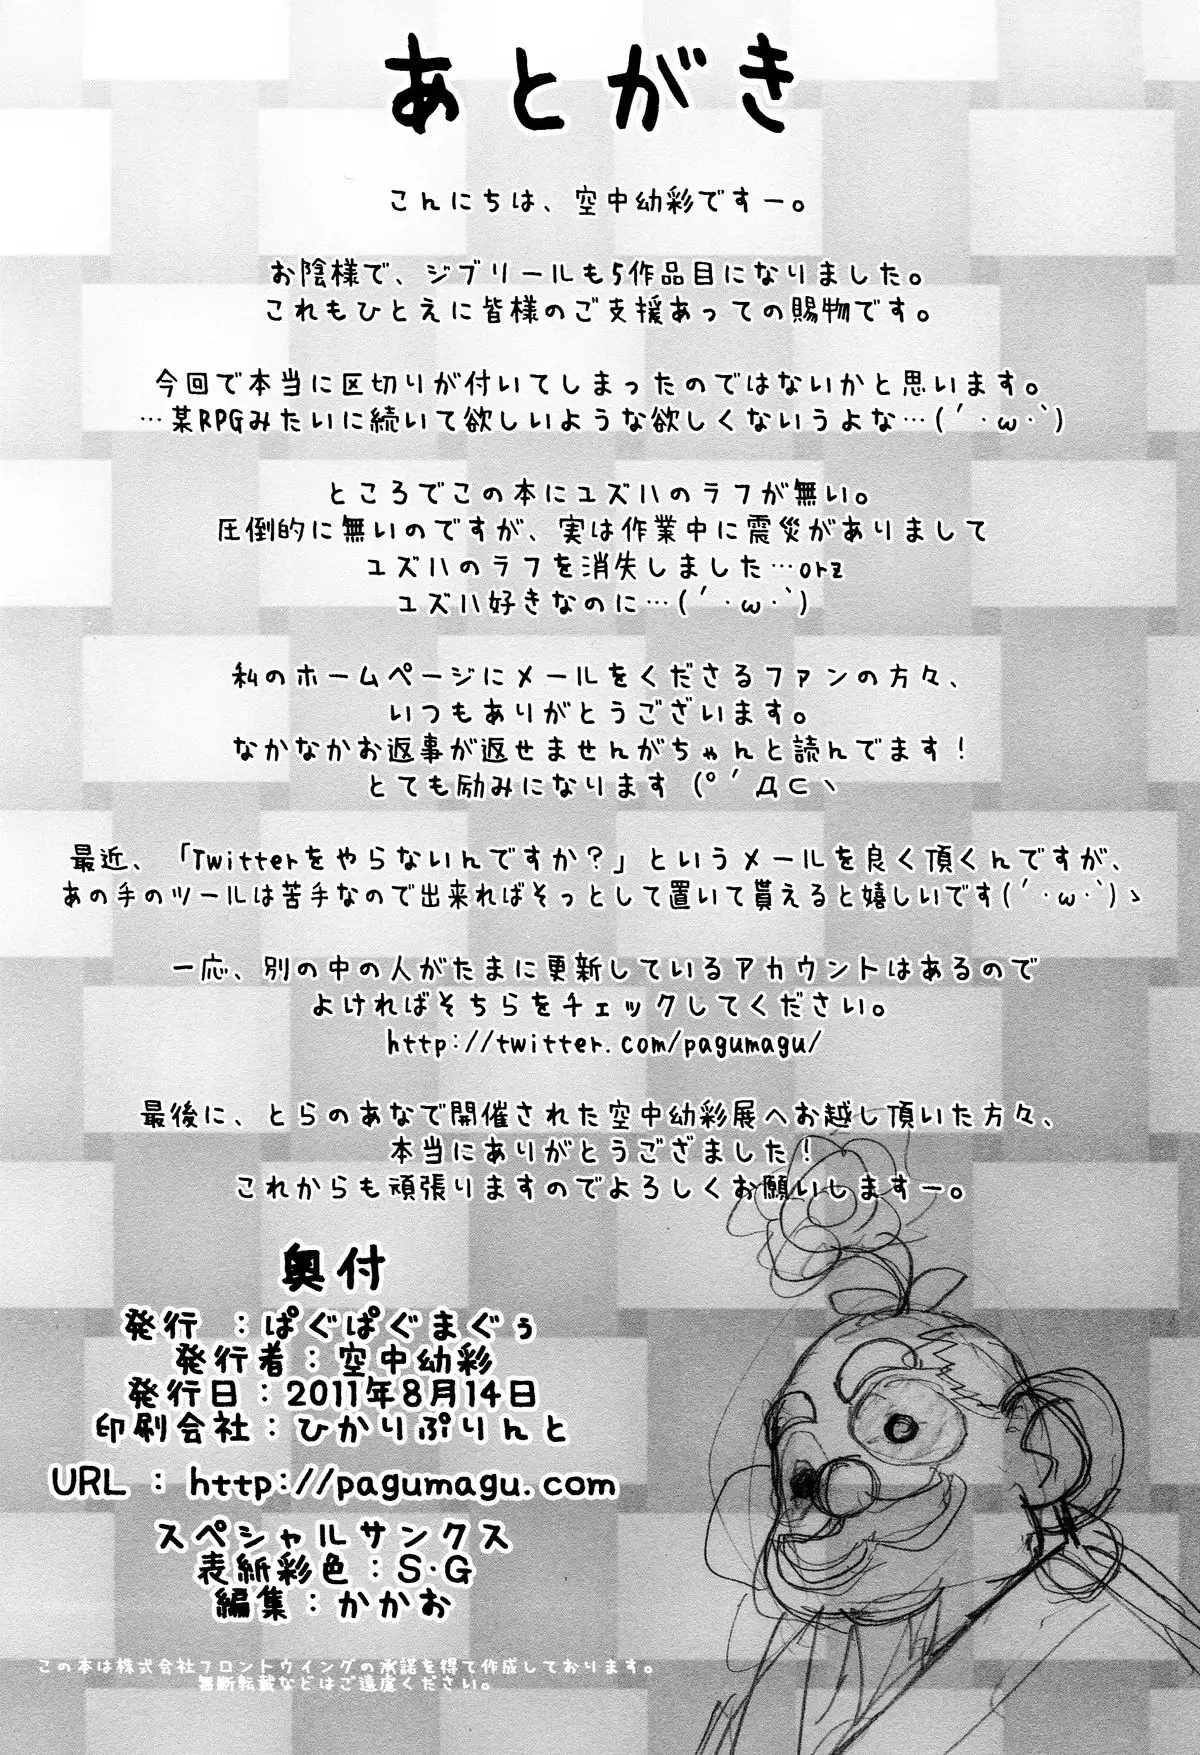 あとがき
こんにちは、空中幼彩ですー。
お陰様で、ジブリールも5作品目になりました。
これもひとえに皆様のご支援あっての賜物です。
今回で本当に区切りが付いてしまったのではないかと思います。
…某RPGみたいに続いて欲しいような欲しくないうよな…(´・ω・`)
ところでこの本にユズハのラフが無い。
圧倒的に無いのですが、実は作業中に震災がありまして
ユズハのラフを消失しました…orz
ユズハ好きなのに…(´・ω・`)
私のホームページにメールをくださるファンの方々、
いつもありがとうございます。
なかなかお返事が返せませんがちゃんと読んでます!
とても励みになります (º ´Д⊂ヽ
最近、「Twitterをやらないんですか?」というメールを良く頂くんですが、
あの手のツールは苦手なので出来ればそっとして置いて貰えると嬉しいです(´・ω・`)ゝ
一応、別の中の人がたまに更新しているアカウントはあるので
よければそちらをチェックしてください。
http://twitter.com/pagumagu/
最後に、とらのあなで開催された空中幼彩展へお越し頂いた方々、
本当にありがとうござました!
これからも頑張りますのでよろしくお願いしますー。
奥付
発行 : ぱぐぱぐまぐぅ
発行者 : 空中幼彩
発行日 : 2011年8月14日
印刷会社 : ひかりぷりんと
URL : http://pagumagu.com
スペシャルサンクス
表紙彩色 : S・G
編集 : かかお
この本は株式会社フロントウイングの承諾を得て作成しております。
無断転載などはご遠慮ください。